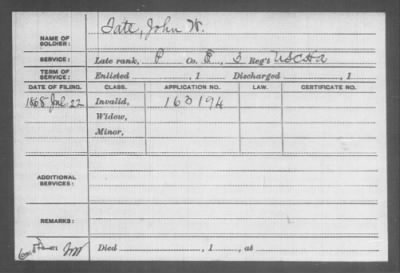 NAME OF SOLDIER: Tate, John W.
SERVICE: Late rank, P Co. E, 3 Reg't USCHA
TERM OF SERVICE: Enlisted , 1 Discharged , 1
DATE OF FILING. CLASS. APPLICATION NO. LAW. CERTIFICATE NO.
1868 Jul 22 Invalid, 163194
Widow,
Minor,
ADDITIONAL SERVICES:
REMARKS:
Died , 1 , at